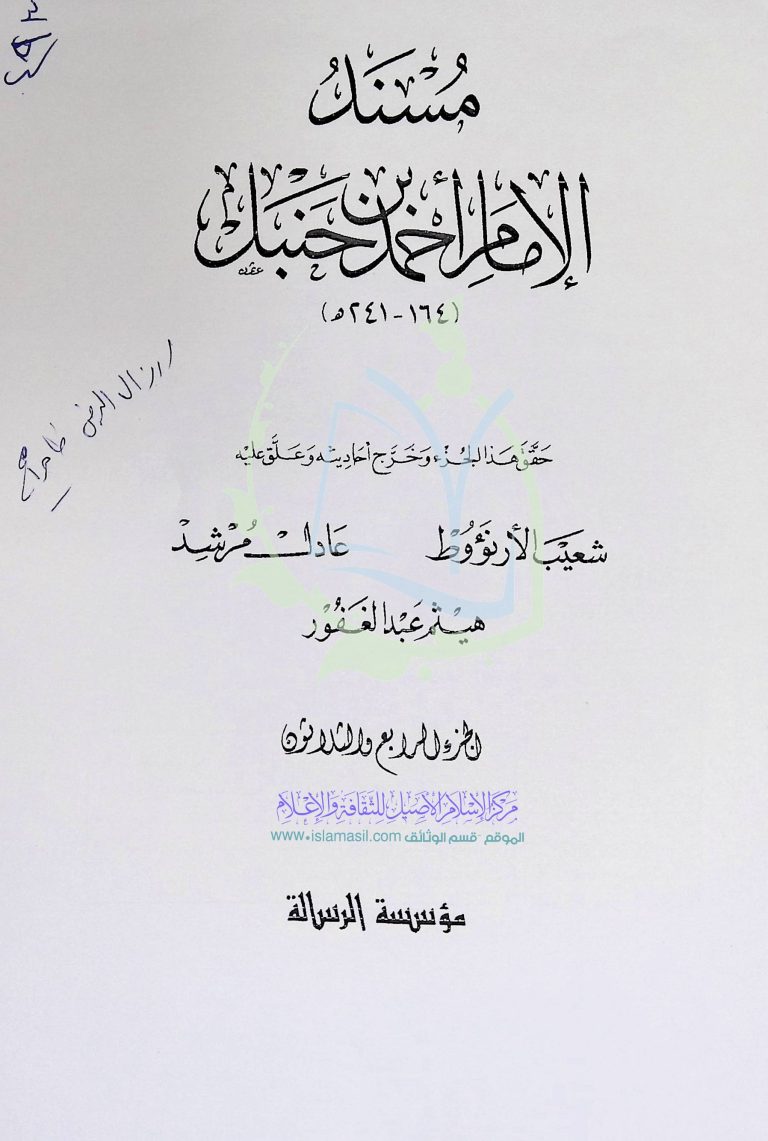 مُسْنَدُ
الإِمَامِ أَحْمَدَ بنِ حَنْبَلٍ
(١٦٤ - ٢٤١ هـ)
حَقَّقَ هَذا الجُزْء وَخَرَّج أحَاديثه وَعَلَّق عَليْه
شعَيْب الأرنَؤُوط عَادل مُرْشِد
هيْثم عَبْد الغَفُور
الجزء الرابع والثلاثون
مركز الإسلام الأصيل للثقافة والإعلام
الموقع - قسم الوثائق www.islamasil.com
مؤسسة الرسالة